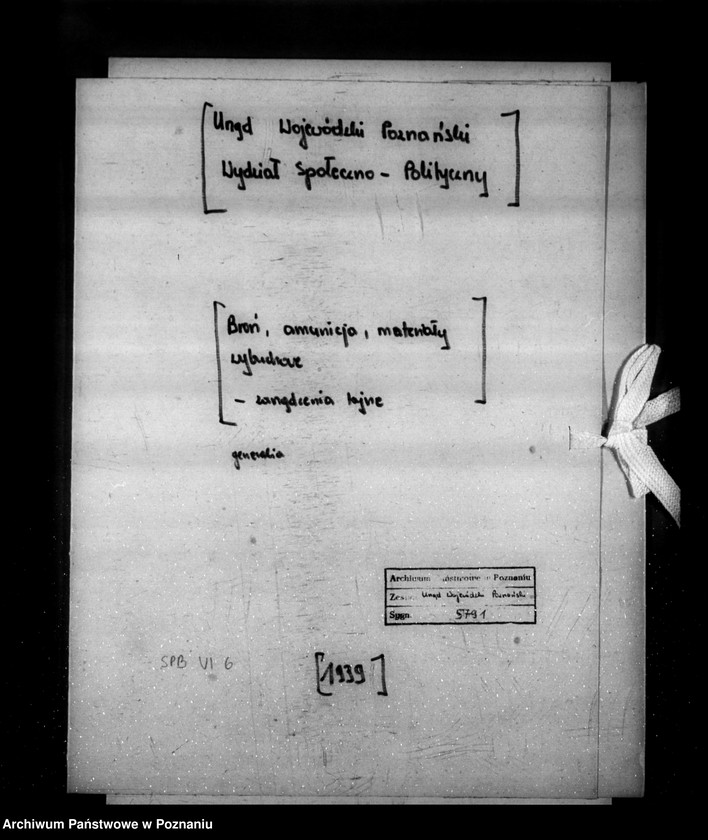 [Urząd Wojewódzki Poznański
Wydział Społeczno - Polityczny]
[Broń, amunicja, materiały
wybuchowe
- zarządzenia tajne]
generalia
Archiwum Państwowe w Poznaniu
Zesp. Urząd Wojewódzki Poznański
Sygn. 5791
SPB VI 6
[1939]
Archiwum Państwowe w Poznaniu